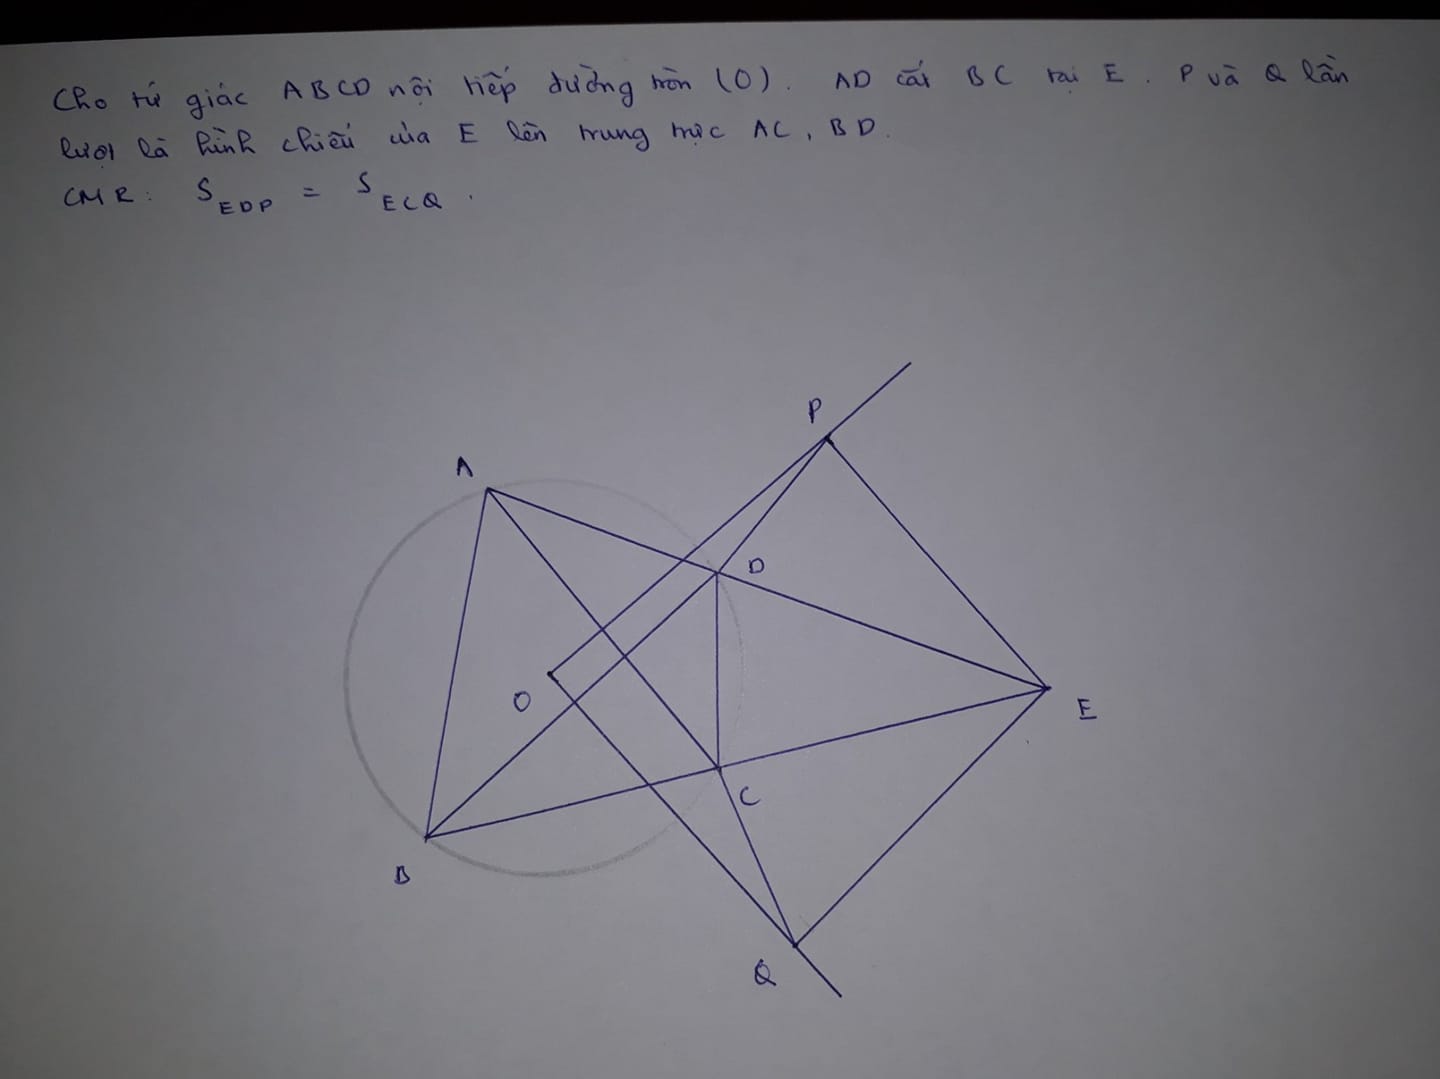 Cho tứ giác ABCD nội tiếp đường tròn (O). AD cắt BC tại E. P và Q lần
lượt là hình chiếu của E lên trung trực AC, BD.
CMR: S EDP = S ECQ.
P
A
D
O
E
C
B
Q